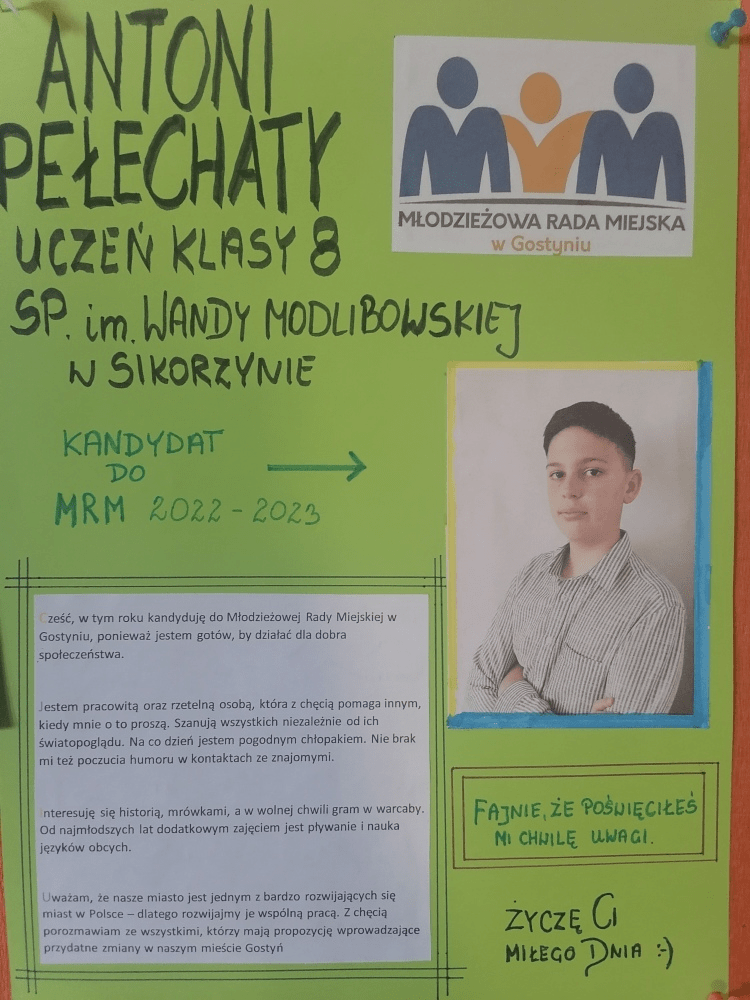 ANTONI
PEŁECHATY
UCZEŃ KLASY 8
SP. im. WANDY MODLIBOWSKIEJ
W SIKORZYNIE
MŁODZIEŻOWA RADA MIEJSKA
w Gostyniu
KANDYDAT
DO
MRM 2022-2023
Cześć, w tym roku kandyduję do Młodzieżowej Rady Miejskiej w
Gostyniu, ponieważ jestem gotów, by działać dla dobra
społeczeństwa.
Jestem pracowitą oraz rzetelną osobą, która z chęcią pomaga innym,
kiedy mnie o to proszą. Szanują wszystkich niezależnie od ich
światopoglądu. Na co dzień jestem pogodnym chłopakiem. Nie brak
mi też poczucia humoru w kontaktach ze znajomymi.
Interesuję się historią, mrówkami, a w wolnej chwili gram w warcaby.
Od najmłodszych lat dodatkowym zajęciem jest pływanie i nauka
języków obcych.
Uważam, że nasze miasto jest jednym z bardzo rozwijających się
miast w Polsce – dlatego rozwijajmy je wspólną pracą. Z chęcią
porozmawiam ze wszystkimi, którzy mają propozycję wprowadzające
przydatne zmiany w naszym mieście Gostyń
FAJNIE, ŻE POŚWIĘCIŁEŚ
MI CHWILĘ UWAGI.
ŻYCZĘ CI
MIŁEGO DNIA :-)